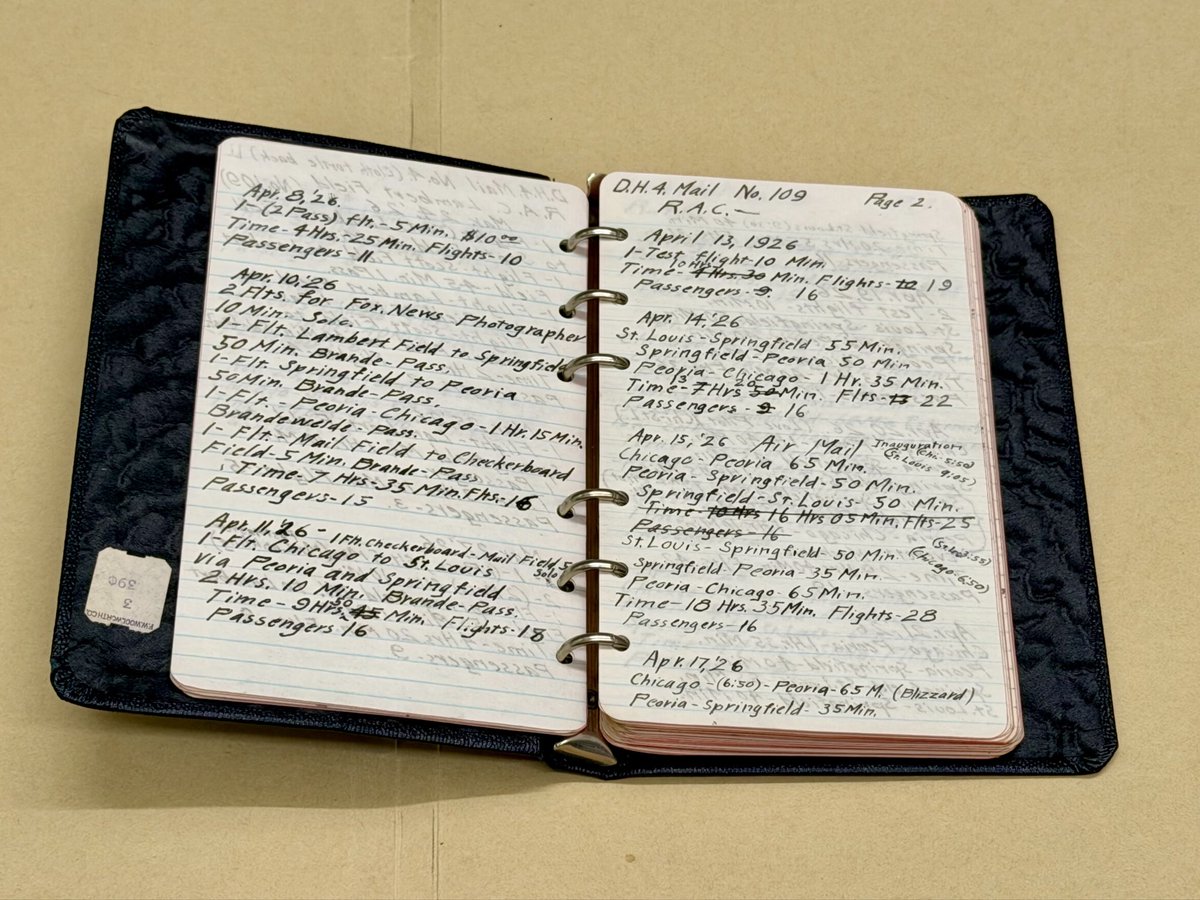 Apr. 8,'26
1-(2 Pass) flt. - 5 Min. $10.00
Time - 4 Hrs.-25 Min. Flights - 10
Passengers - 11
Apr. 10,'26
2 Flts. for Fox. News Photographer
10 Min. Solo.
1- Flt. Lambert Field to Springfield
50 Min. Brande - Pass.
1-Flt. Springfield to Peoria
50 Min. Brande - Pass.
1-Flt. - Peoria - Chicago - 1 Hr. 15 Min.
Brandeweide - Pass.
1- Flt. - Mail Field to Checkerboard
Field - 5 Min. Brande - Pass
Time - 7 Hrs - 35 Min. Flts - 16
Passengers - 15
Apr. 11,'26 - 1 Flt. Checkerboard - Mail Field, 5 Solo
1-Flt. Chicago to St. Louis
via Peoria and Springfield
2 Hrs. 10 Min. Brande - Pass.
Time - 9 Hrs. 45 Min. Flights - 18
Passengers 16
K.W.WOOLWORTH CO.
3
39¢
D.H.4. Mail No. 109 Page 2.
R.A.C. —
April 13, 1926
1-Test flight - 10 Min.
Time - 4 Hrs. 30 10 Hr. Min. Flights - 12 19
Passengers - 9. 16
Apr. 14,'26
St. Louis - Springfield 55 Min.
Springfield - Peoria 50 Min.
Peoria - Chicago - 1 Hr. 35 Min.
Time - 7 13 Hrs 50 20 Min. Flts - 13 22
Passengers - 9 16
Apr. 15,'26 Air - Mail Inauguration (Chi. 5:50)
Chicago - Peoria 65 Min. (St. Louis 9:05)
Peoria - Springfield - 50 Min.
Springfield - St. Louis - 50 Min.
Time - 10 Hrs 16 Hrs 05 Min. Flts - 25
Passengers - 16
St. Louis - Springfield - 50 Min.
Springfield - Peoria - 35 Min. (Chicago - 6:50)
Peoria - Chicago 65 Min.
Time - 18 Hrs. 35 Min. Flights - 28
Passengers - 16
Apr. 17,'26
Chicago - (6:50) - Peoria - 65 M. (Blizzard)
Peoria - Springfield - 35 Min.